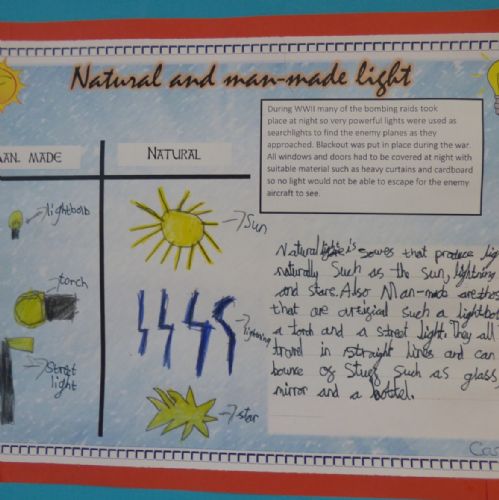 Natural and man-made light
During WWII many of the bombing raids took
place at night so very powerful lights were used as
searchlights to find the enemy planes as they
approached. Blackout was put in place during the war.
All windows and doors had to be covered at night with
suitable material such as heavy curtains and cardboard
so no light would not be able to escape for the enemy
aircraft to see.
AN. MADE
NATURAL
lightbolb
torch
street
light
Sun
lightning
star
Natural light is sowes that produce lig
naturally Such as the Sun, lightning
and stars. Also Man-made are thos
that are artigical such a lightbol
a torch and a street light. They all
travel in straight lines and can
bounce of Stuff Such as glass
mirror and a bottel.
Cas